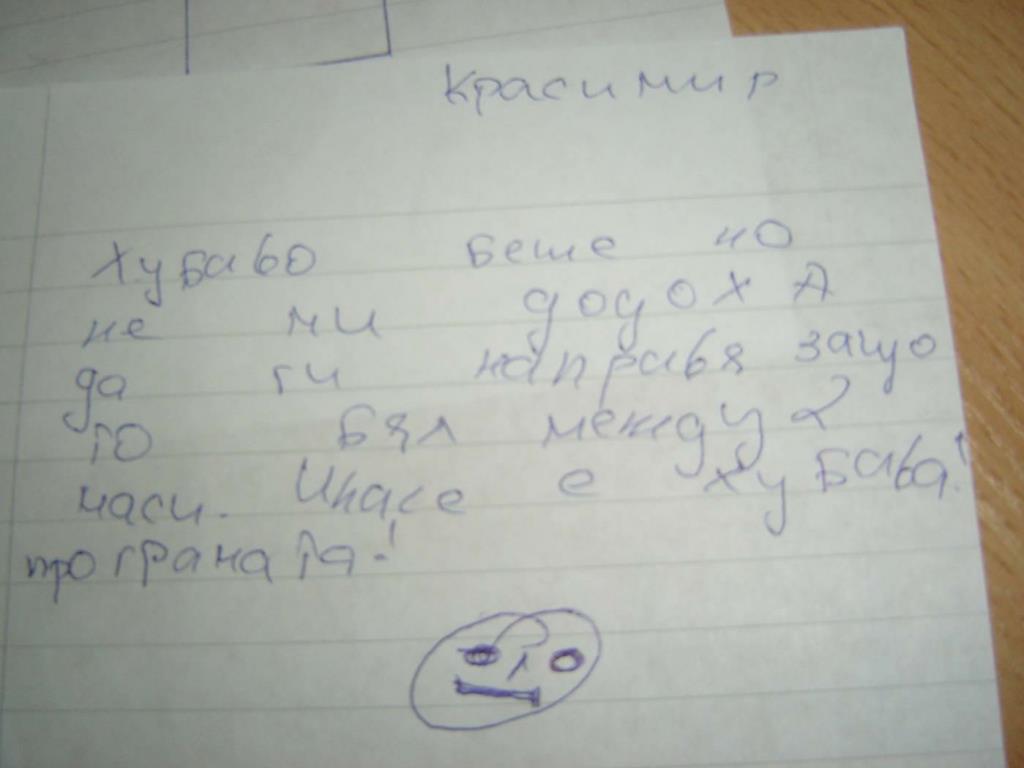 Красимир
Хубаво беше но
не ми додоха
да ги направя защо
то бял между 2
маси. Инасе е хубава!
програната!